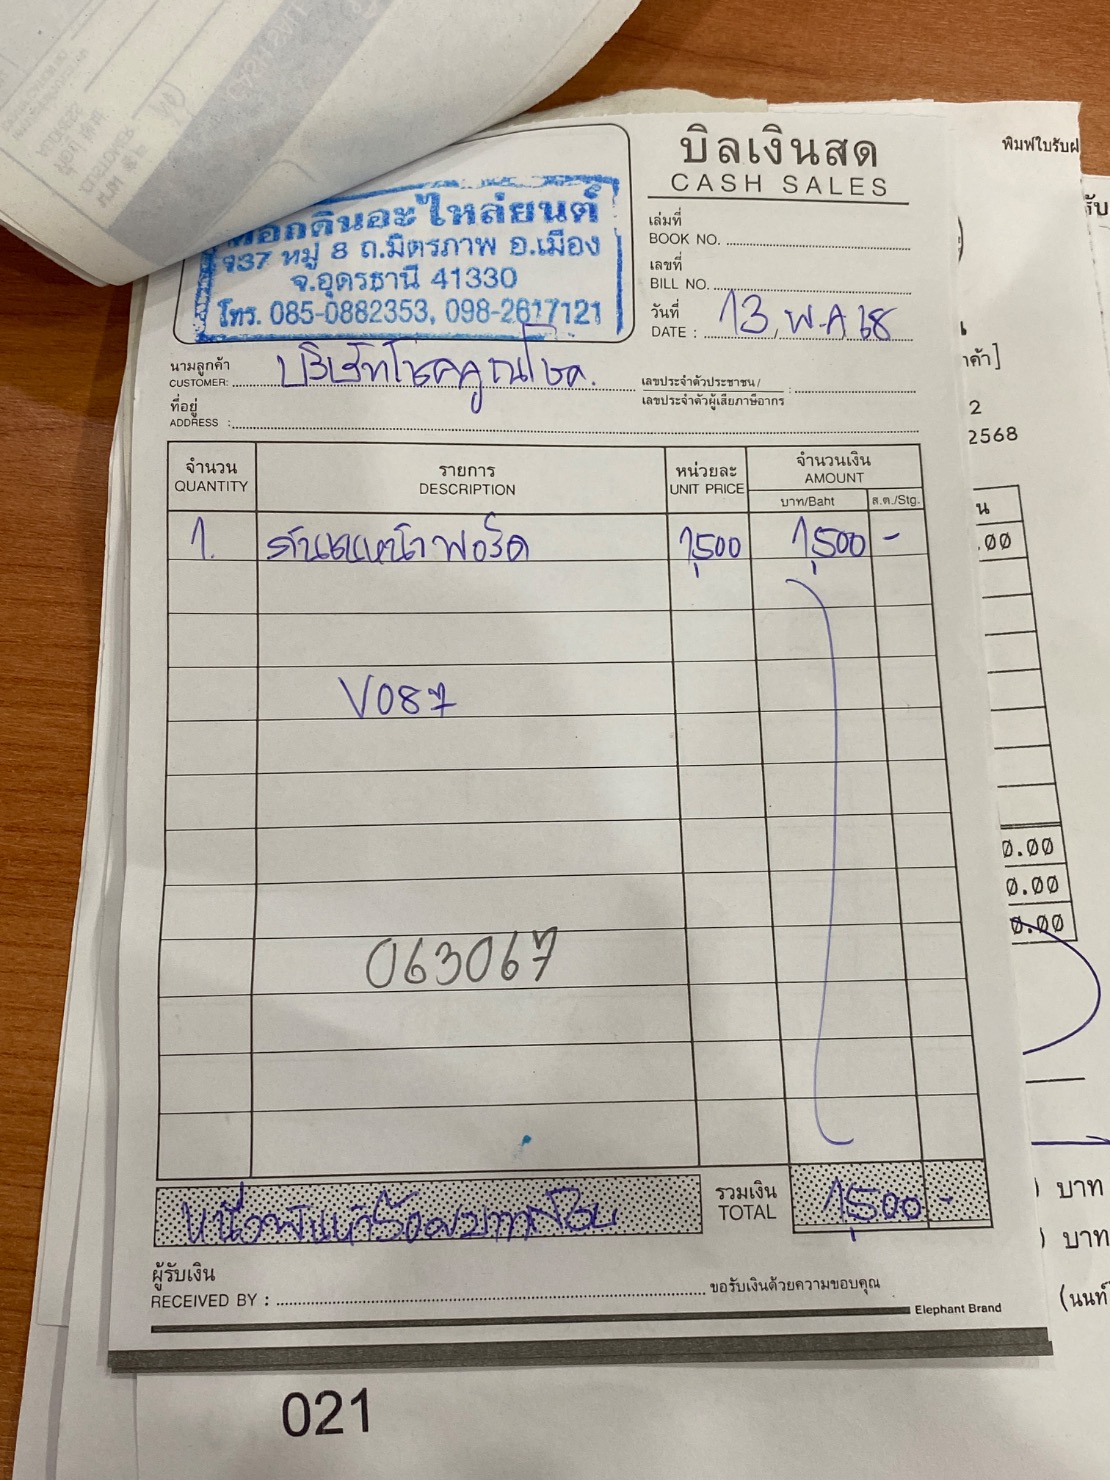 บิลเงินสด
CASH SALES
อะไหล่ยนต์
937 หมู่ 8 ถ.มิตรภาพ อ.เมือง
จ.อุดรธานี 41330
โทร. 085-0882353, 098-2617121
เล่มที่
BOOK NO.
เลขที่
BILL NO.
วันที่
DATE : 13, พ.ค 68
นามลูกค้า
CUSTOMER: บริษัทโชคคูณโชค.
เลขประจำตัวประชาชน /
เลขประจำตัวผู้เสียภาษีอากร :
ที่อยู่
ADDRESS :
จำนวน รายการ หน่วยละ จำนวนเงิน
QUANTITY DESCRIPTION UNIT PRICE AMOUNT
บาท/Baht ส.ต./Stg.
1. หน้าฟอร์ด 1,500 1,500 -
V087
063067
หนึ่งพันห้าร้อยบาทถ้วน
รวมเงิน
TOTAL 1,500 -
ผู้รับเงิน
RECEIVED BY :
ขอรับเงินด้วยความขอบคุณ
Elephant Brand
021
พิมพ์ใบรับฝ
รับ
ค้า]
2
2568
น
.00
0.00
0.00
0.00
) บาท
) บาท
(นนท์